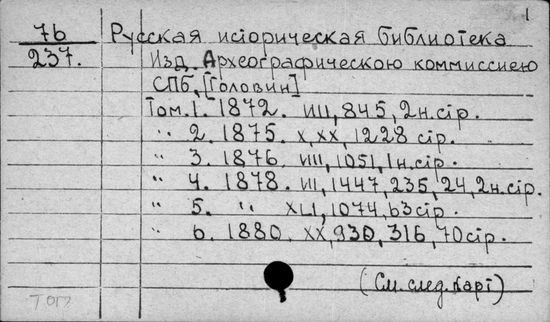 1
7б
237.
Русская историческая библиотека
Изд. Археографическою коммиссиею
СПб, [Головин]
Том. 1. 1872. VIII, 845, 2 н. стр.
" 2. 1875. X, XX, 1228 стр.
" 3. 1876. VIII, 1051, 1 н. стр.
" 4. 1878. VII, 1447, 235, 24, 2 н. стр.
" 5. " XLI, 1074, 63 стр.
" 6. 1880. XX, 930, 316, 70 стр.
(См. след. карт)